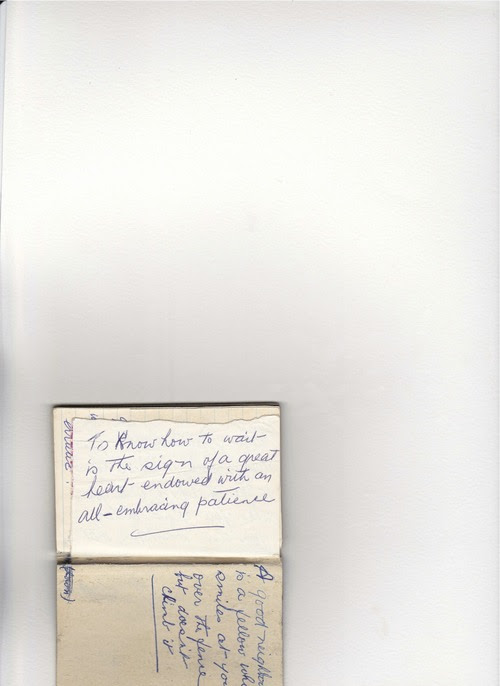 To know how to wait
is the sign of a great
heart endowed with an
all-embracing patience
A good neighbou
is a fellow who
smiles at you
over the fence
but doesn't
climb it